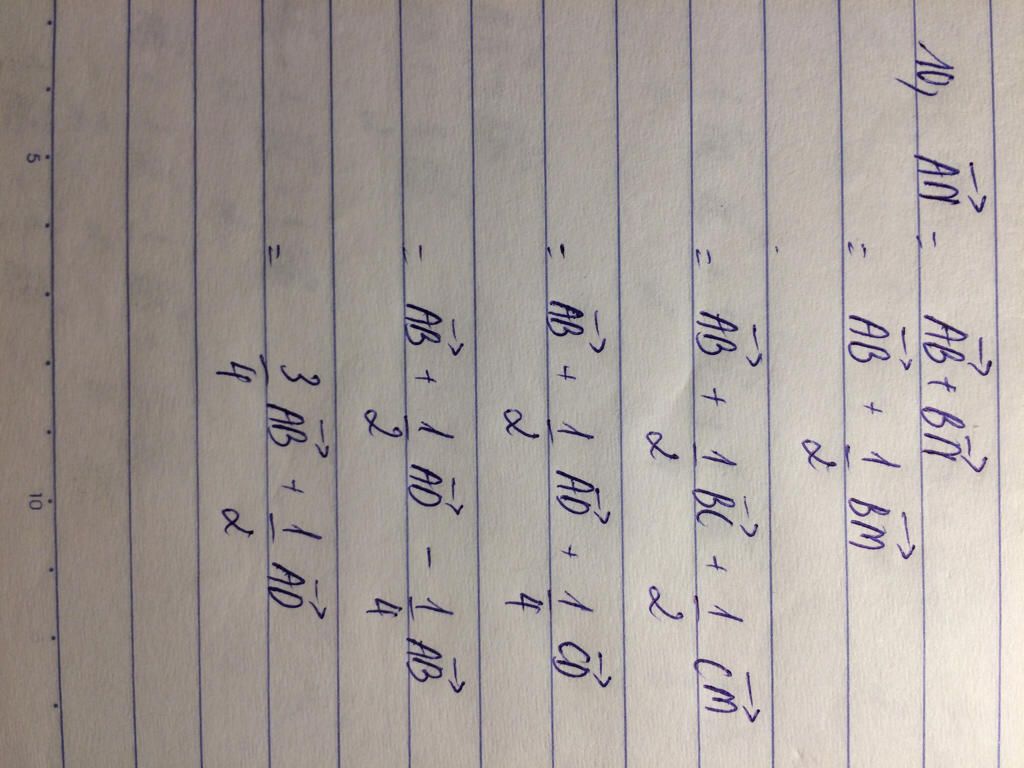 10, $\overrightarrow{AN} = \overrightarrow{AB} + \overrightarrow{BN}$
$= \overrightarrow{AB} + \frac{1}{2} \overrightarrow{BM}$
$= \overrightarrow{AB} + \frac{1}{2} \overrightarrow{BC} + \frac{1}{2} \overrightarrow{CM}$
$= \overrightarrow{AB} + \frac{1}{2} \overrightarrow{AD} + \frac{1}{4} \overrightarrow{CD}$
$= \overrightarrow{AB} + \frac{1}{2} \overrightarrow{AD} - \frac{1}{4} \overrightarrow{AB}$
$= \frac{3}{4} \overrightarrow{AB} + \frac{1}{2} \overrightarrow{AD}$
5 10